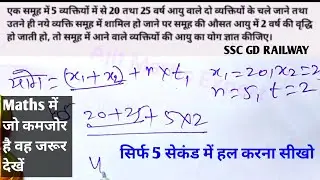 एक समूह में 5 व्यक्तियों में से 20 तथा 25 वर्ष आयु वाले दो व्यक्तियों के चले जाने तथा
उतने ही नये व्यक्ति समूह में शामिल हो जाने पर समूह की औसत आयु में 2 वर्ष की वृद्धि
हो जाती हो, तो समूह में आने वाले व्यक्तियों की आयु का योग ज्ञात कीजिए।
SSC GD RAILWAY
योग = (x₁ + x₂) + n × t,
x₁ = 20, x₂ = 2
n = 5, t = 2
20 + 25 + 5 × 2
Maths में
जो कमजोर
है वह जरूर
देखें
सिर्फ 5 सेकंड में हल करना सीखो